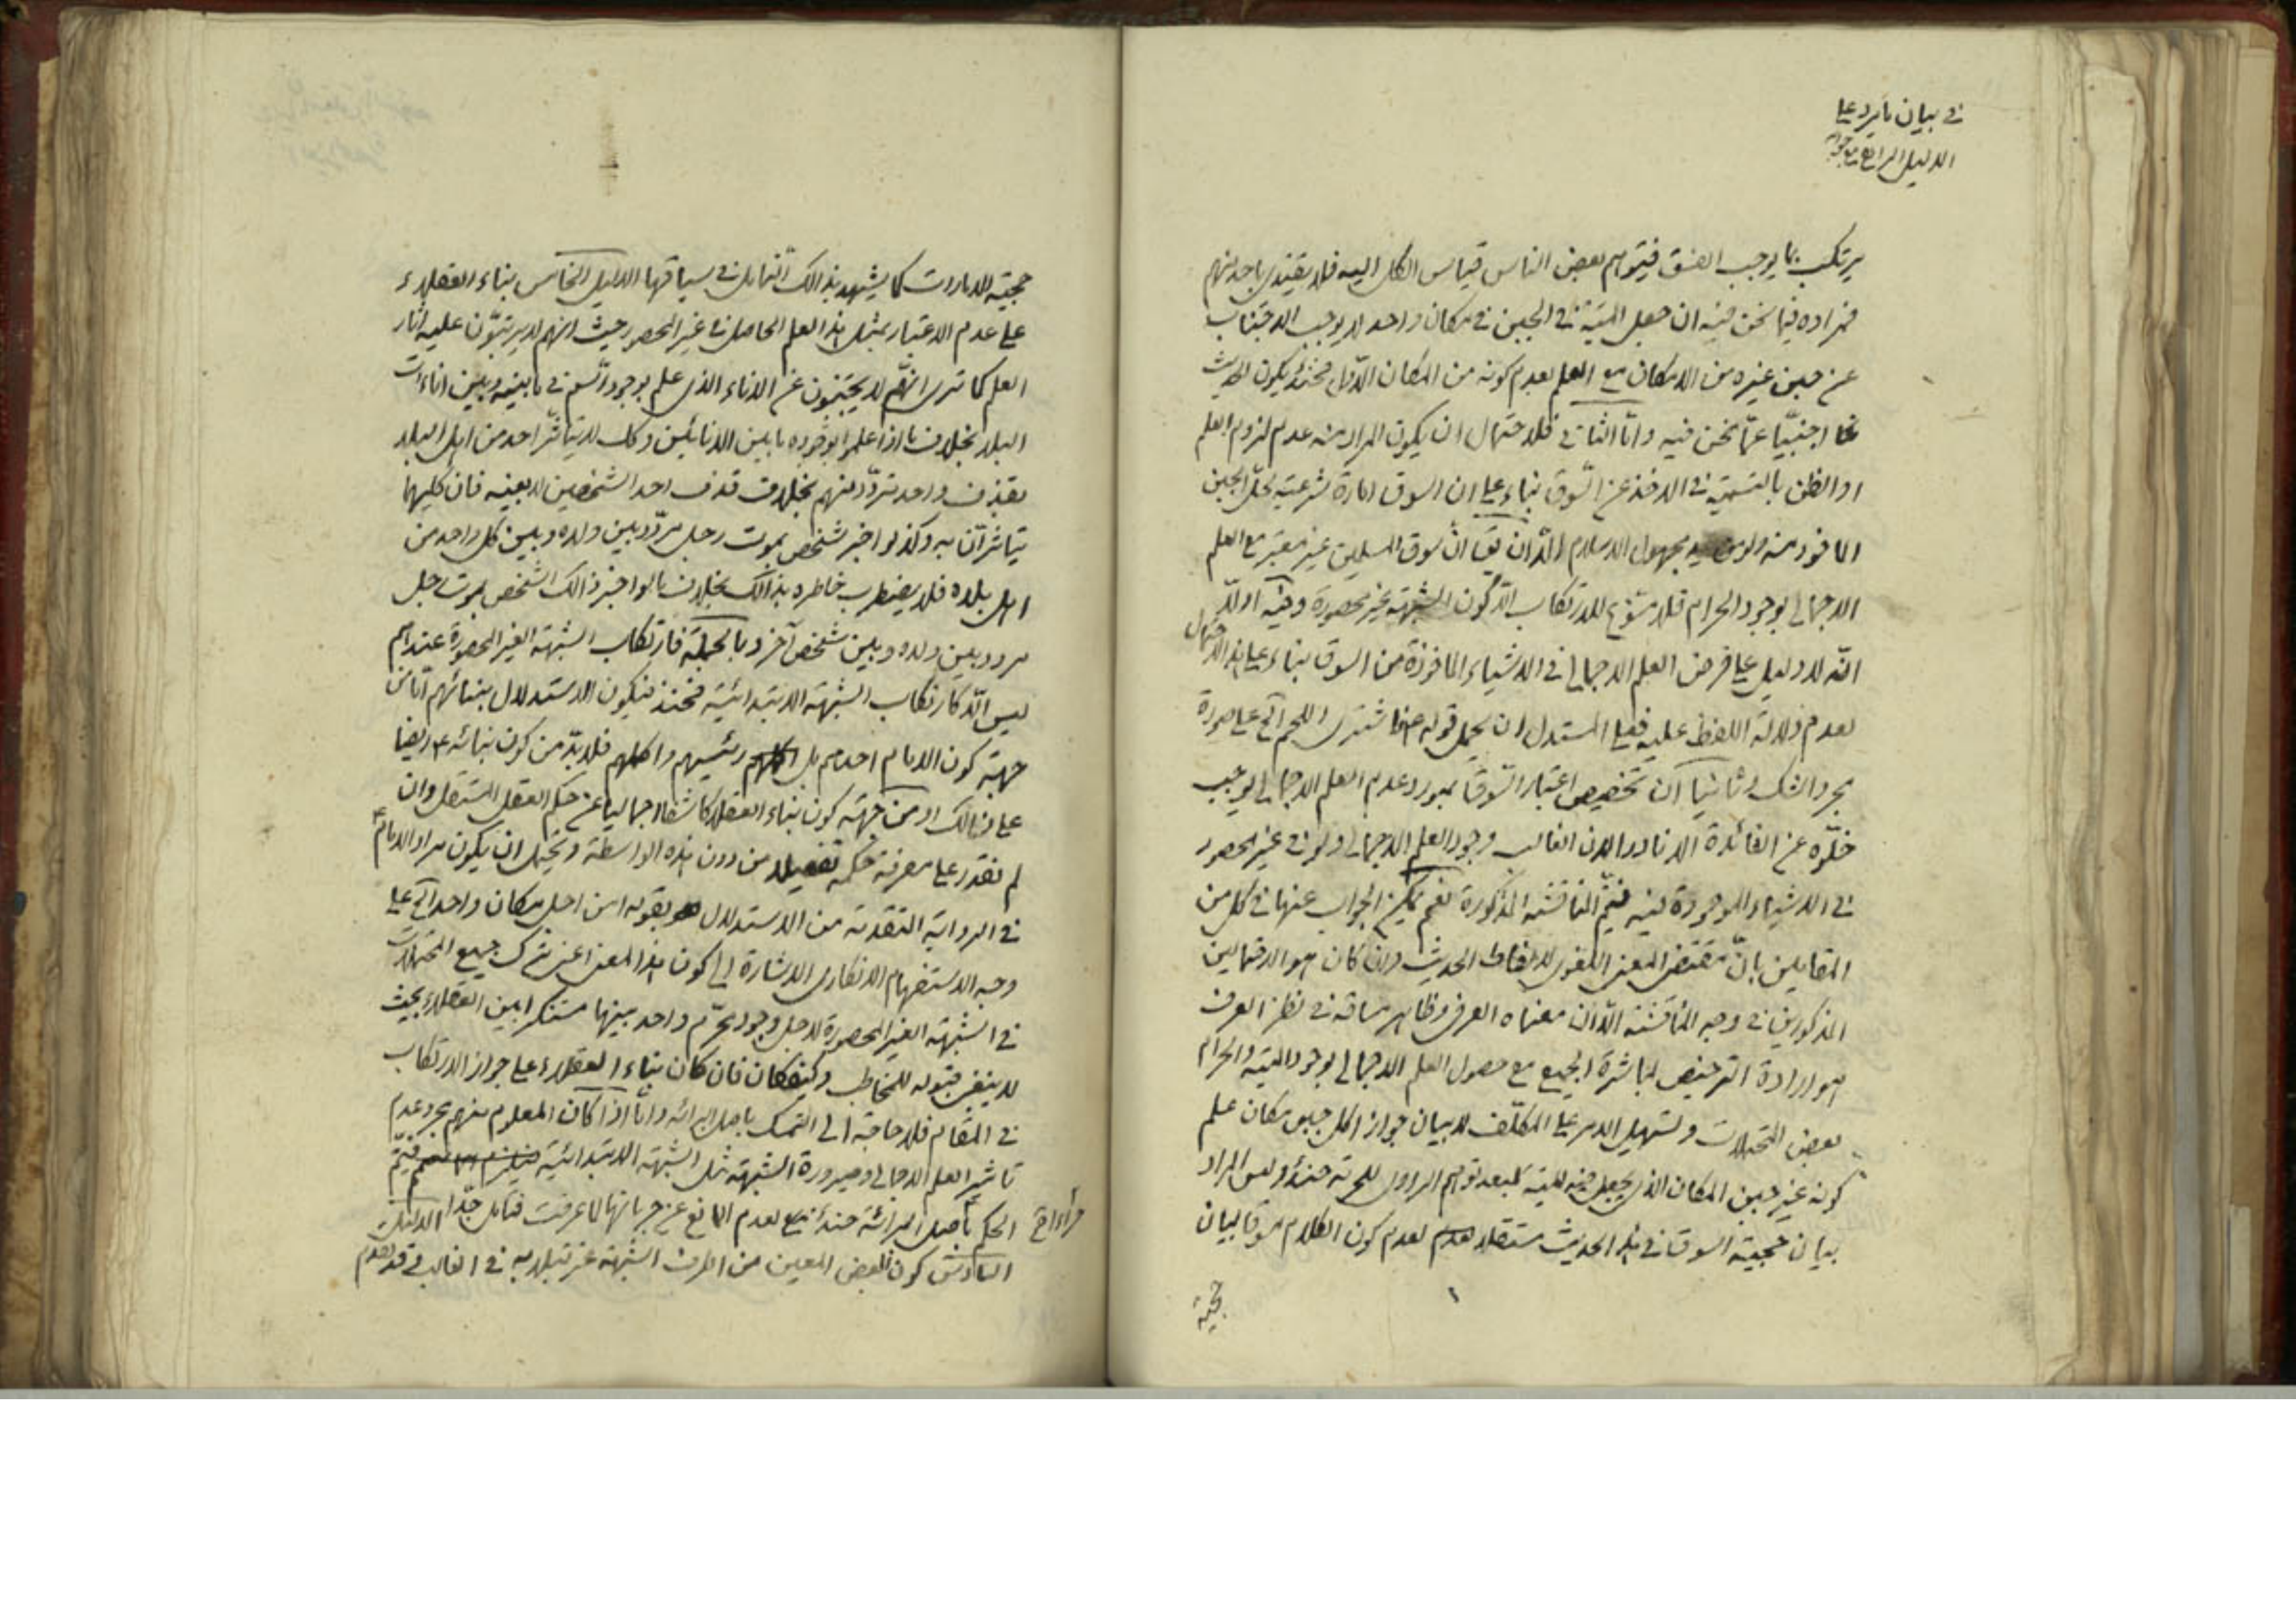 في بيان ما يرد على
الدليل الرابع مع جوابه
يرتكب بما يوجب الفسق فيتوهم بعض الناس قياس الكل اليه فلا يقتدى باحد منهم
فمراده فيما نحن فيه ان جعل الميتة في الجبن في مكان واحد لا يوجب الاجتناب
عن جبن غيره من الامكان مع العلم بعدم كونه من المكان الاول فحينئذ يكون الحديث
اجنبيّا عمّا نحن فيه وامّا الثاني فلاحتمال ان يكون المراد منه عدم لزوم العلم
او الظن بالتسمية في الاخذ عن السّوق بناء على ان السوق امارة شرعية لحلّ الجبن
الماخوذ منه ولو من يد مجهول الاسلام الّا ان يق انّ سوق المسلمين غير معتبر مع العلم
الاجمالي بوجود الحرام فلا مسوّغ للارتكاب الّا كون الشبهة غير محصورة وفيه اولا
انّه لا دليل على فرض العلم الاجمالي في الاشياء الماخوذة من السوق بناء على هذا الاحتمال
لعدم دلالة اللفظ عليه فعلى المستدل ان يحمل قوله فاشترى اللحم آه على صورة
مجرد الشك وثانيا انّ تخصيص اعتبار السّوق بمورد عدم العلم الاجمالي يوجب
خلوّه عن الفائدة الا نادرا لان الغالب وجود العلم الاجمالي ولو في غير محصور
في الاشياء الموجودة فيه فيتمّ المناقشة المذكورة نعم يمكن الجواب عنها في كل من
المقابلين بانّ مقتضى المعنى اللغوى لالفاظ الحديث وان كان هو الاحتمالين
المذكورين في وجه المناقشة الّا ان معناه العرفي وظاهر مساقه في نظر العرف
هو ارادة الترخيص لمباشرة الجميع مع حصول العلم الاجمالي بوجود الميتة والحرام
بعض المحتملات وتسهيل الامر على المكلّف لا بيان جواز اكل جبن مكان علم
كونه غير جبن المكان الذى يجعل فيه الميتة لبعد توهم الراوى للحرمة حينئذ وليس المراد
بيان حجية السوق في هذا الحديث مستقلا لعدم كون الكلام مسوقا لبيان
حجية
حجية الامارات كما يشهد بذالك التامل في سياقها الدليل الخامس بناء العقلاء
على عدم الاعتبار بمثل هذا العلم الحاصل في غير المحصور حيث انهم لا يرتبون عليه آثار
العلم كما ترى انهم لا يجتنبون عن الاناء الذى علم بوجود السّم في ما بينه وبين اناءات
البلد بخلاف ما اذا علموا بوجوده ما بين الانائين وكك لا يتاثّر احد من اهل البلد
بقذف واحد تردّد منهم بخلاف قذف احد الشخصين لا بعينه فان كليهما
يتاثرّان به وكذا لو اخبر شخص بموت رجل مردّد بين ولده وبين كل واحد من
اهل بلده فلا يضطرب خاطره بذالك بخلاف ما لو اخبر ذالك الشخص بموت رجل
مردد بين ولده وبين شخص آخر وبالجملة فارتكاب الشبهة الغير المحصورة عندهم
ليس الّا كارتكاب الشبهة الابتدائية فحينئذ فيكون الاستدلال ببنائهم امّا من
جهة كون الامام احدهم بل رئيسهم واكملهم فلا بدّ من كون بنائه ع ايضا
على ذالك او من جهة كون بناء العقلاء كاشفا اجماليا عن حكم العقل المستقل وان
لم نقدر على معرفة حكمه تفصيلا من دون هذه الواسطة ويحتمل ان يكون مراد الامام ع
في الرواية المتقدمة من الاستدلال بقوله امن اجل مكان واحد آه على
وجه الاستفهام الانكارى الاشارة الى كون هذا المعنى اعنى ترك جميع المحتملات
في الشبهة الغير المحصورة لاجل وجود محرّم واحد بينها مستنكرا بين العقلاء بحيث
لا ينبغي قبوله للمخاطب وكيفكان فان كان بناء العقلاء على جواز الارتكاب
في المقام فلا حاجة الى التمسك باصل البرائه وامّا اذا كان المعلوم منهم مجرد عدم
تاثير العلم الاجمالي وصيرورة الشبهة مثل الشبهة الابتدائية فيتمّ
الحكم باصل البرائة حينئذ لعدم المانع عن جريانها لما عرفت فتامل جدّا الدليل
السّادس كون البعض المعين من اطراف الشبهة غير مبتلى به في الغالب وقد تقدم